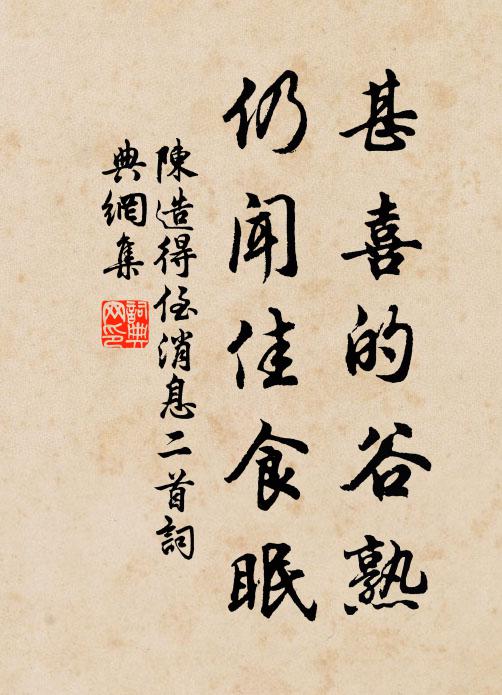 甚喜的谷熟
仍聞佳食眠
陳造得侄消息二首詞
典網集
詞典網印